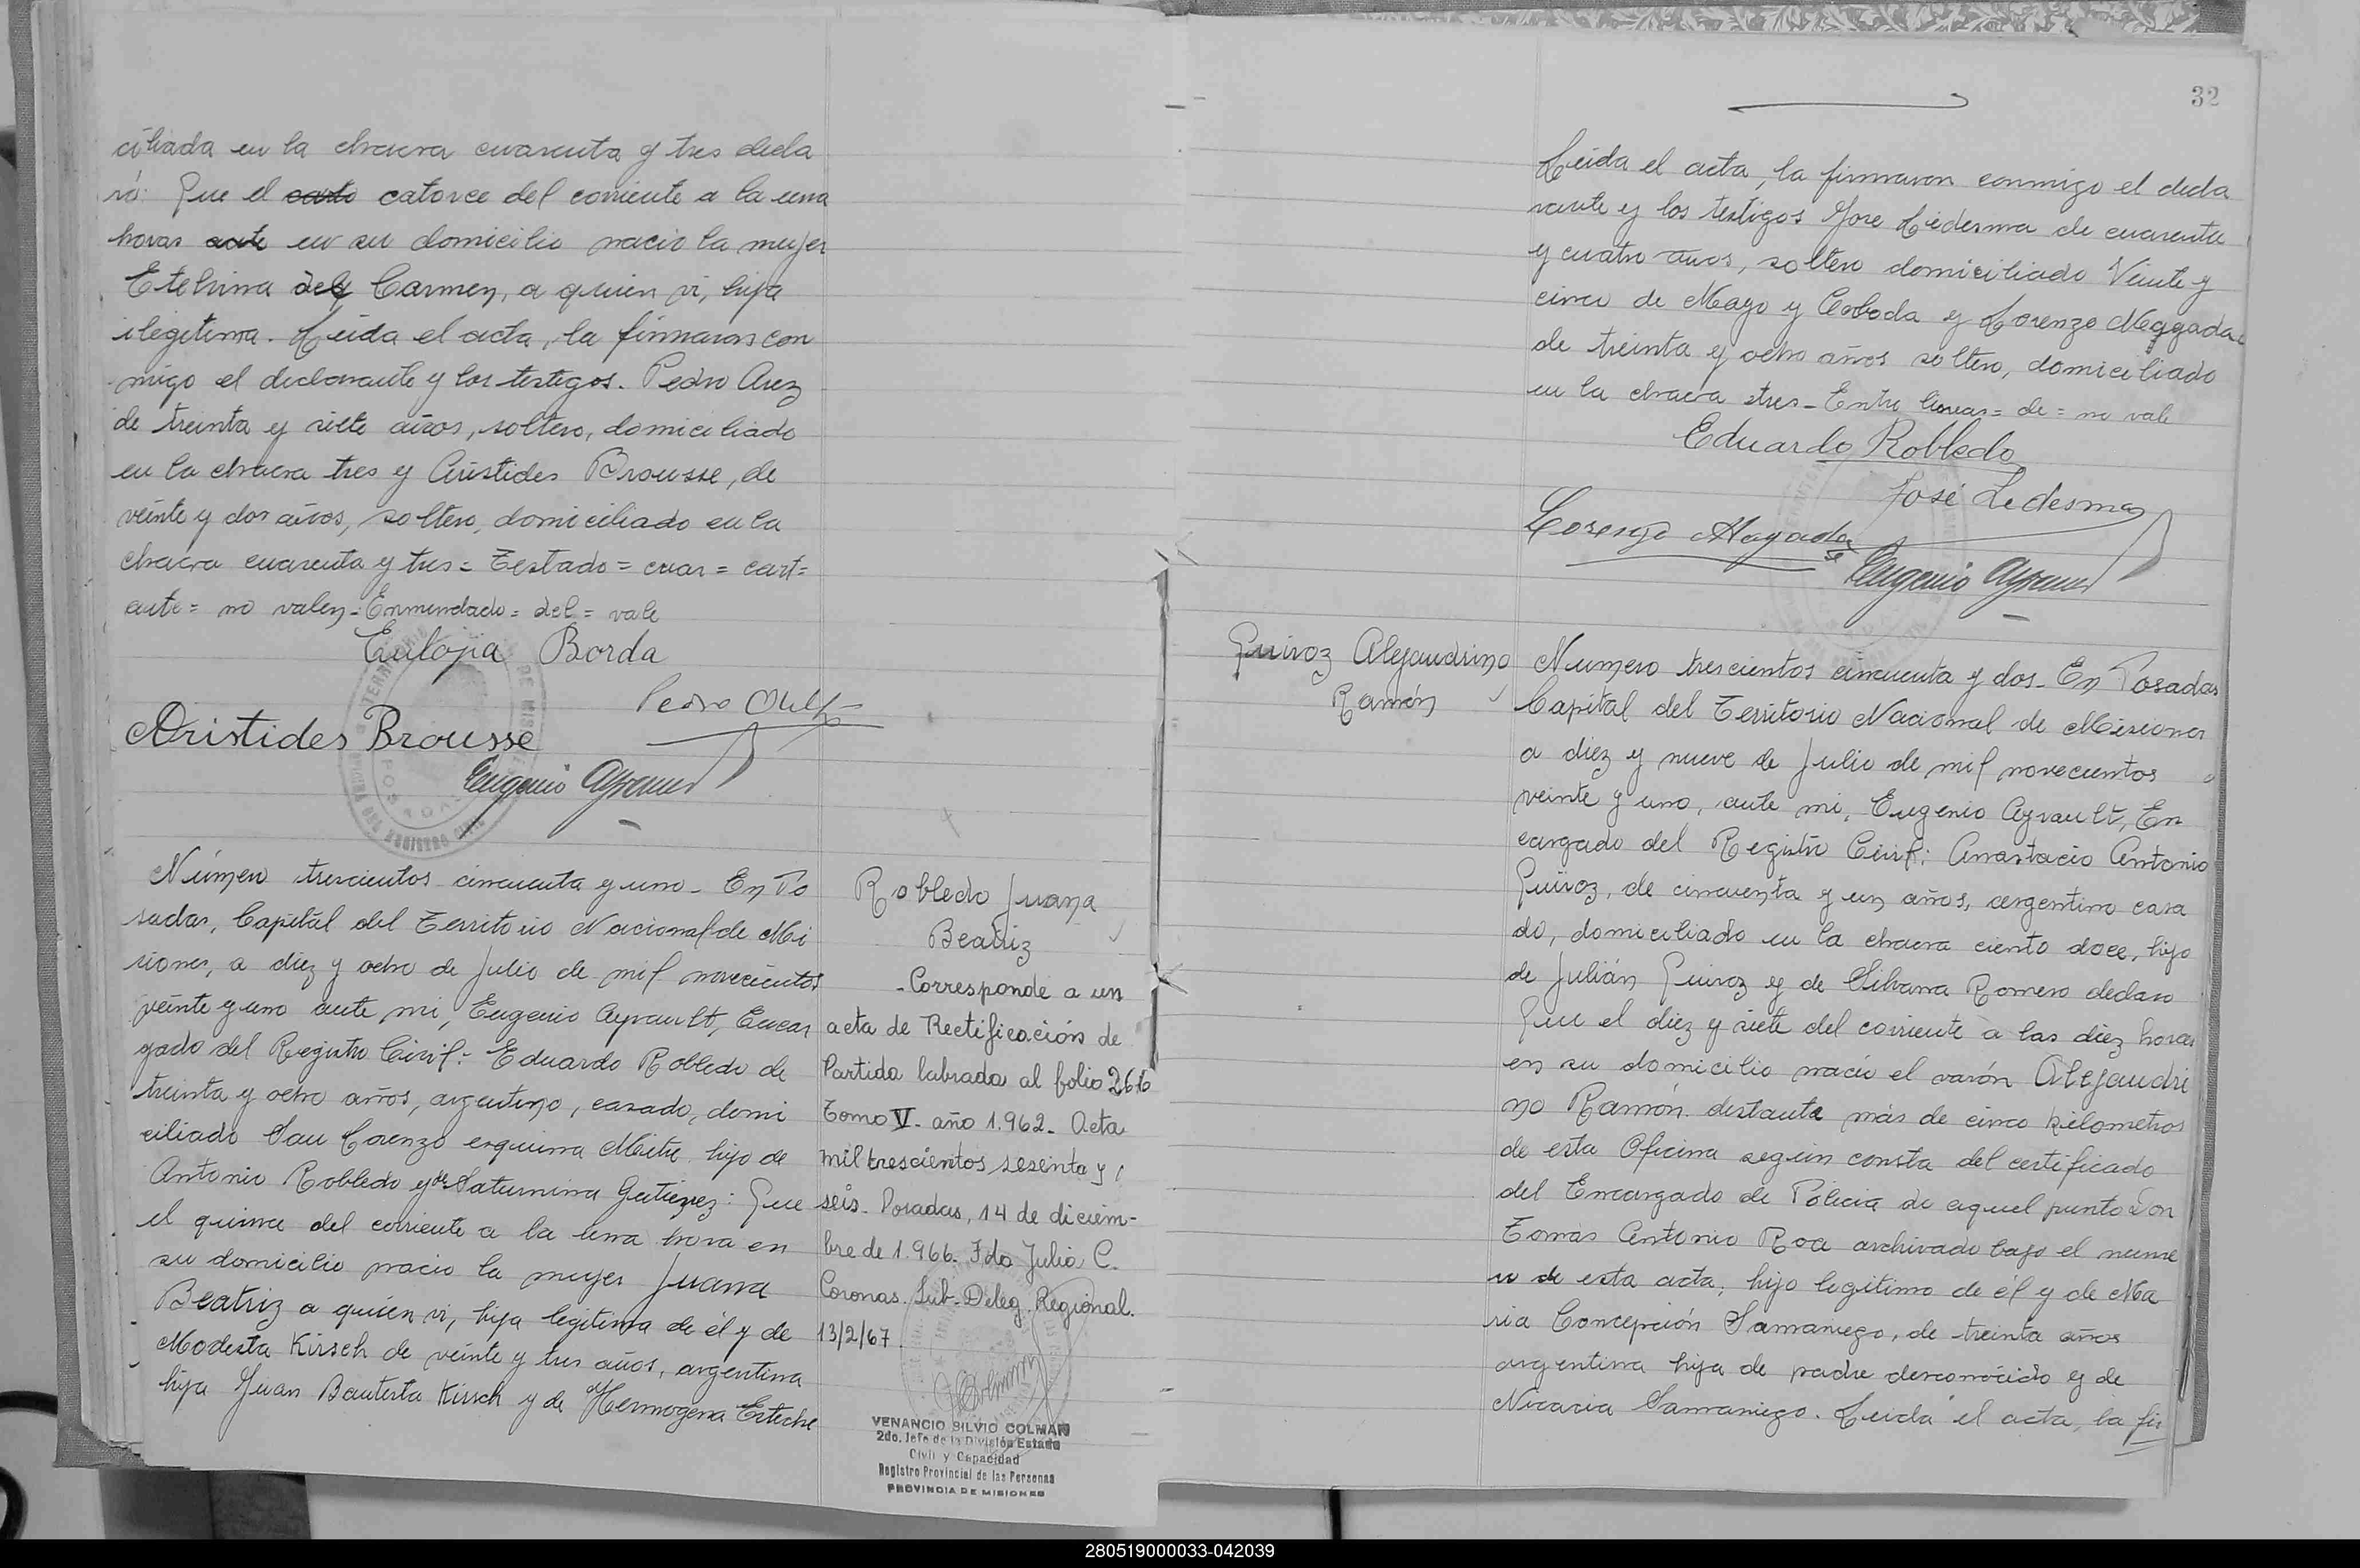 ciliada en la chacra cuarenta y tres decla
ró: Que el carto catorce del corriente a la una
horas ante en su domicilio nació la mujer
Etelvina del Carmen, a quien vi, hija
ilegitima. Leida el acta, la firmaron con
migo el declarante y los testigos. Pedro
de treinta y siete años, soltero, domiciliado
en la chacra tres y Aristides Brousse, de
veinte y dos años, soltero, domiciliado en la
chacra cuarenta y tres = Testado = cuar = cart =
ante = no valen - Enmendado = del = vale
Eulojia Borda
Pedro
Aristides Brousse
Eugenio Ayrault
Número trescientos cincuenta y uno - En Po
sadas, Capital del Territorio Nacional de Mi
siones, a diez y ocho de Julio de mil novecientos
veinte y uno ante mi, Eugenio Ayrault, Encar
gado del Registro Civil: Eduardo Robledo de
treinta y ocho años, argentino, casado, domi
ciliado San Lorenzo esquina Mitre, hijo de
Antonio Robledo y de Saturnina Gutierrez: Que
el quince del corriente a la una hora en
su domicilio nacio la mujer Juana
Beatriz a quien vi, hija legitima de él y de
Modesta Kirsch de veinte y tres años, argentina
hija Juan Bautista Kirsch y de Hermogena Esteche
Robledo Juana
Beatriz
-Corresponde a un
acta de Rectificación de
Partida labrada al folio 266
Tomo V. año 1.962. Acta
mil trescientos sesenta y
seis. Posadas, 14 de diciem-
bre de 1.966. Fdo Julio C.
Coronas. Sub-Deleg. Regional.
13/2/67
VENANCIO SILVIO COLMAN
2do. Jefe de la División Estado
Civil y Capacidad
Registro Provincial de las Personas
PROVINCIA DE MISIONES
32
Leida el acta, la firmaron conmigo el decla
rante y los testigos Jose Ledesma de cuarenta
y cuatro años, soltero domiciliado Veinte y
cinco de Mayo y Cordoba y Lorenzo
de treinta y ocho años soltero, domiciliado
en la chacra tres - Entre lineas = de = no vale
Eduardo Robledo
José Ledesma
Lorenzo
Eugenio Ayrault
Quiroz Alejandrino
Ramón
Numero trescientos cincuenta y dos - En Posadas
Capital del Territorio Nacional de Misiones
a diez y nueve de Julio de mil novecientos
veinte y uno, ante mi, Eugenio Ayrault, En
cargado del Registro Civil: Anastacio Antonio
Quiroz, de cincuenta y un años, argentino casa
do, domiciliado en la chacra ciento doce, hijo
de Julián Quiroz y de Silvana Romero declaro
Que el diez y siete del corriente a las diez horas
en su domicilio nació el varón Alejandri
no Ramón distante más de cinco kilometros
de esta Oficina según consta del certificado
del Encargado de Policia de aquel punto Don
Tomás Antonio Roa archivado bajo el nume
ro de esta acta; hijo legitimo de él y de Ma
ria Concepción Samaniego, de treinta años
argentina hija de padre desconocido y de
Nicacia Samaniego. Leida el acta, la fir
280519000033-042039